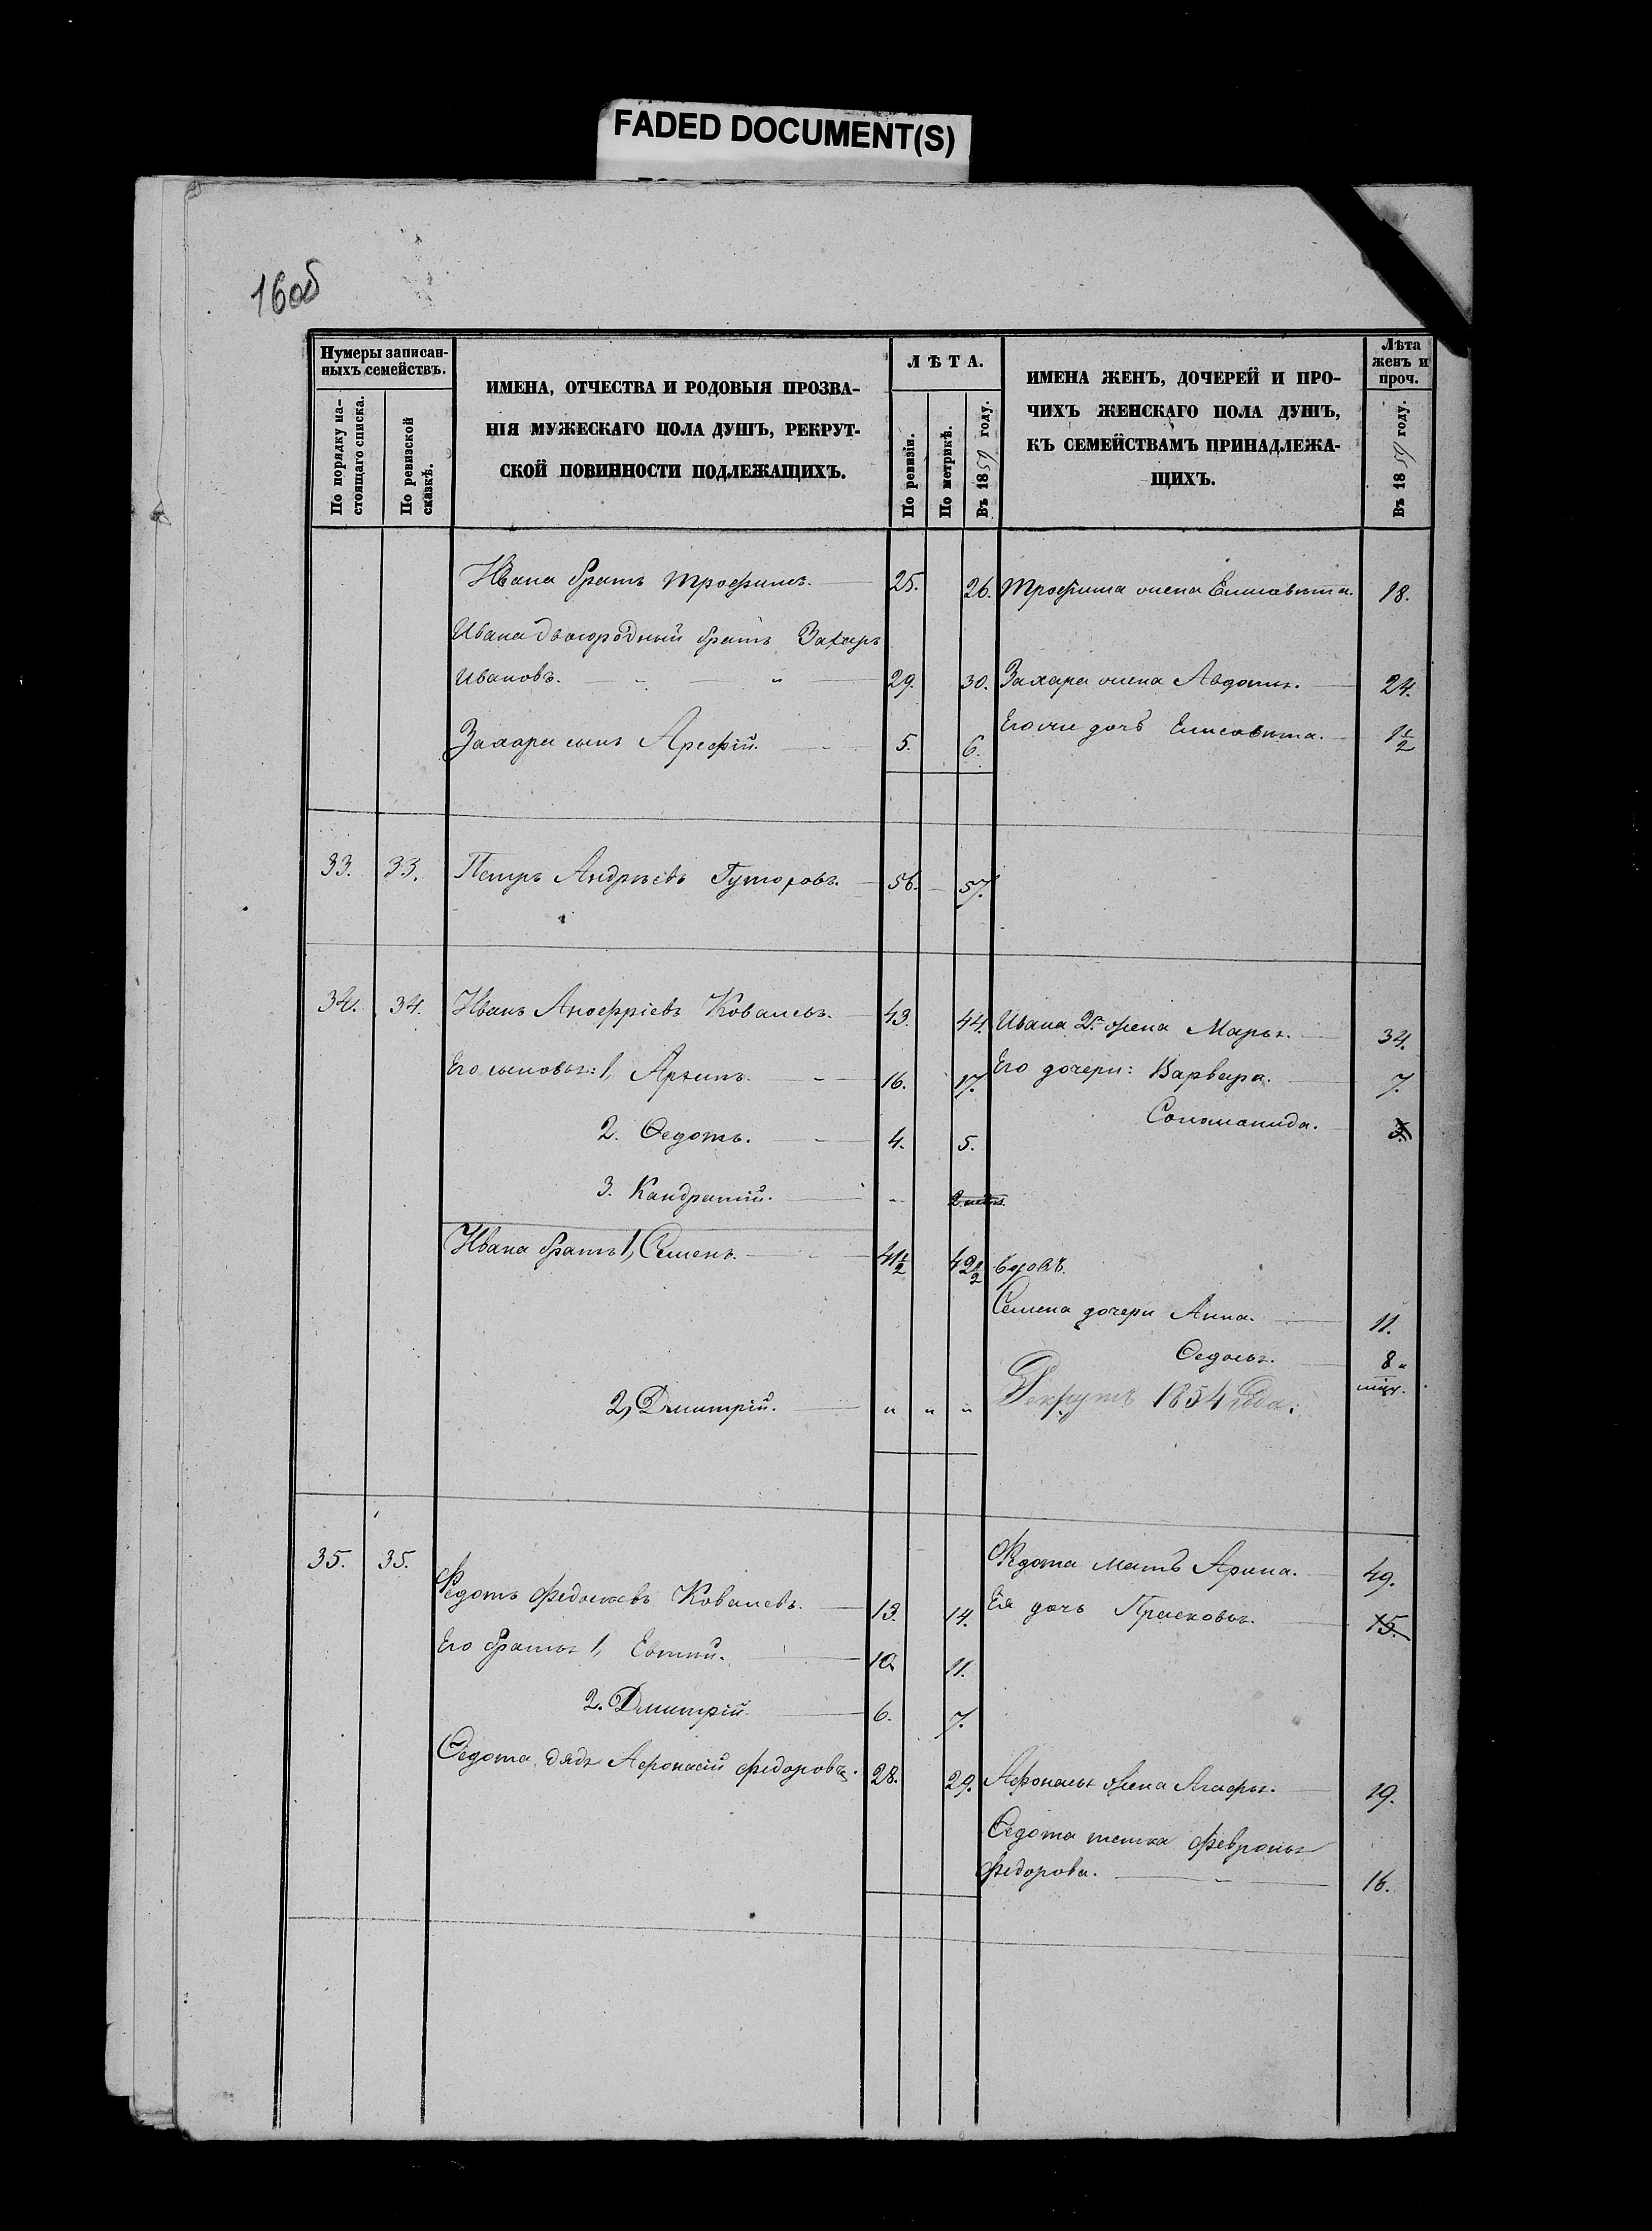 FADED DOCUMENT(S)
16об
Нумеры записан-
ныхъ семействъ.
По порядку на-
стоящаго списка.
По ревизской
сказкѣ.
ИМЕНА, ОТЧЕСТВА И РОДОВЫЯ ПРОЗВА-
НІЯ МУЖЕСКАГО ПОЛА ДУШЪ, РЕКРУТ-
СКОЙ ПОВИННОСТИ ПОДЛЕЖАЩИХЪ.
ЛѢТА.
По ревизіи.
По метрикѣ.
Въ 1859 году.
ИМЕНА ЖЕНЪ, ДОЧЕРЕЙ И ПРО-
ЧИХЪ ЖЕНСКАГО ПОЛА ДУШЪ,
КЪ СЕМЕЙСТВАМЪ ПРИНАДЛЕЖА-
ЩИХЪ.
Лѣта
женъ и
проч.
Въ 1859 году.
Ивана братъ Трофимъ. 25. 26. Трофима жена Елисавѣта. 18.
Ивана двоюродный братъ Захаръ
Ивановъ. 29. 30. Захара жена Авдотья. 24.
Захара сынъ Арефій. 5. 6. Его же дочь Елисавѣта. 1½
33. 33. Петръ Андрѣевъ Гуторовъ. 56. 57.
34. 34. Иванъ Аноефріевъ Ковалевъ. 43. 44. Ивана 2я жена Марья. 34.
Его сыновья: 1, Архипъ. 16. 17. Его дочери: Варвара. 7.
2. Ѳедотъ. 4. 5. Соломанида. 3.
3. Кандратій. " 2 недѣ.
Ивана братья 1, Семенъ. 41½ 42½ вдовъ.
Семена дочери Анна. 11.
Ѳедосья. 8 мѣс.
2, Дмитрій. " " " Рекрутъ 1854 года.
35. 35. Ѳедота мать Арина. 49.
Федотъ Федосѣевъ Ковалевъ. 13. 14. Ея дочь Прасковья. 15.
Его братья 1, Евтий. 10. 11.
2. Дмитрій. 6. 7.
Ѳедота дядя Афонасій Федоровъ. 28. 29. Афонасья жена Агафья. 19.
Ѳедота тетка Февронья
Федорова. 16.